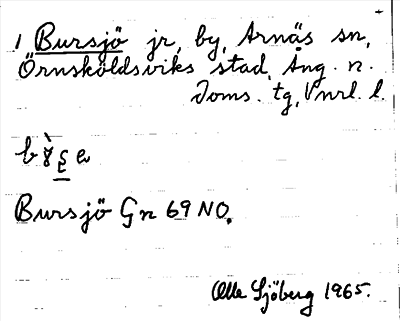 1 Bursjö jr, by, Arnäs sn,
Örnsköldsviks stad, Ång. n.
Doms. tg, Vnrl. l.
Bursjö Gn 69 NO.
Olle Sjöberg 1965.